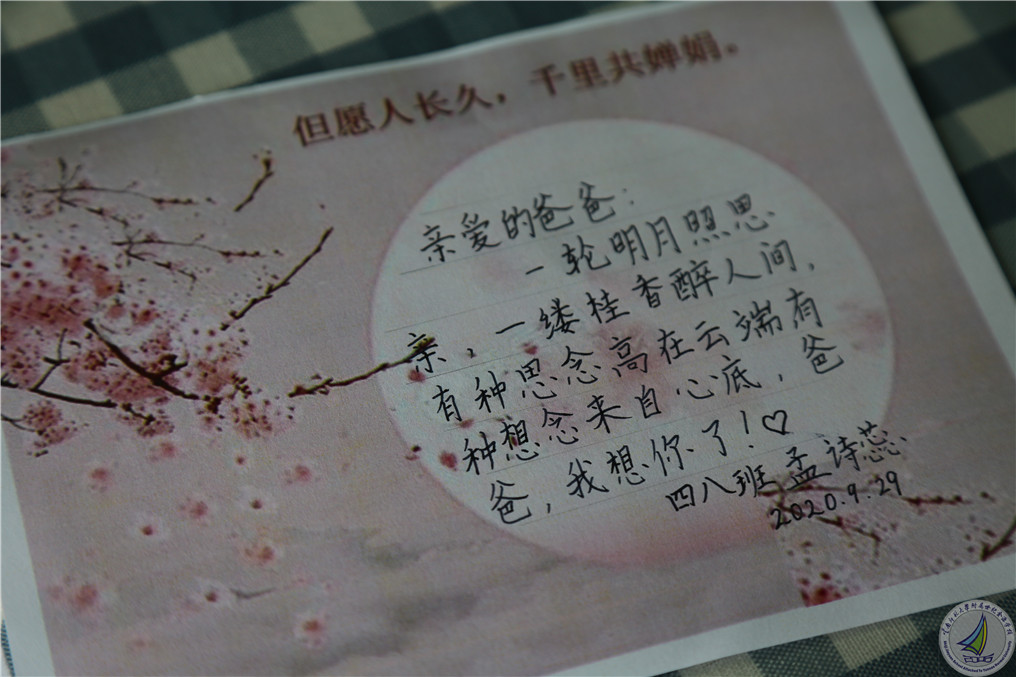 但愿人长久，千里共婵娟。
亲爱的爸爸：
一轮明月照思
亲，一缕桂香醉人间，
有种思念高在云端有
种想念来自心底，爸
爸，我想你了！♡
四八班 孟诗蕊
2020.9.29